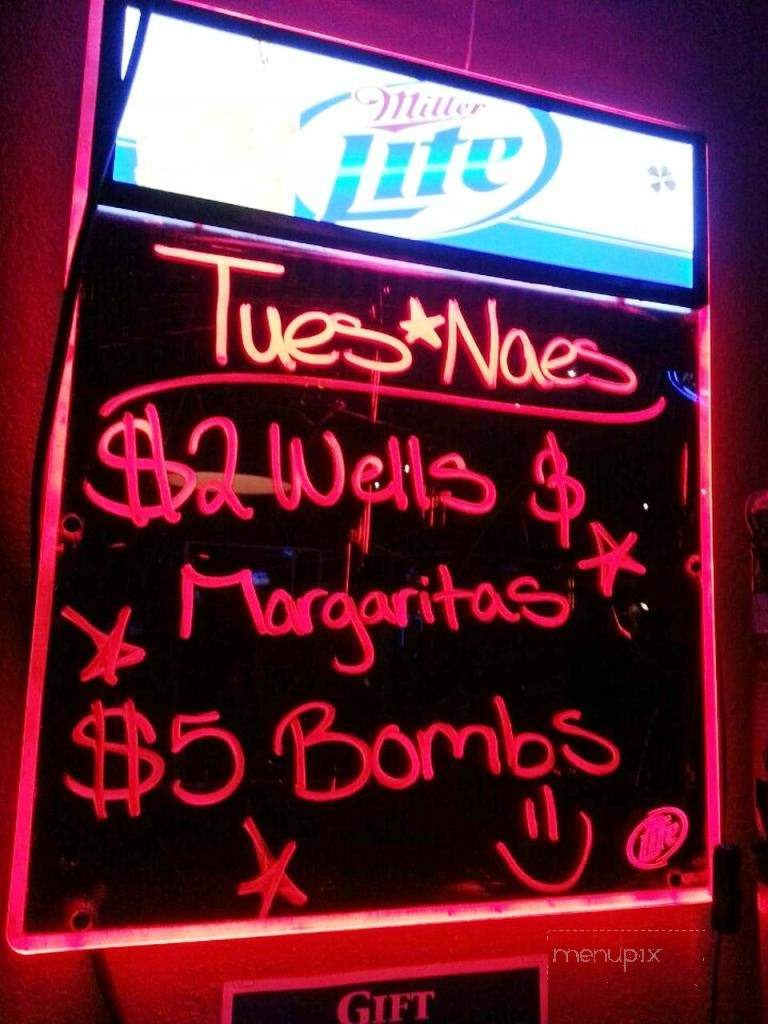 Miller
Lite
Tues*Naes
$2 Wells &
Margaritas
$5 Bombs
Lite
menupix
GIFT